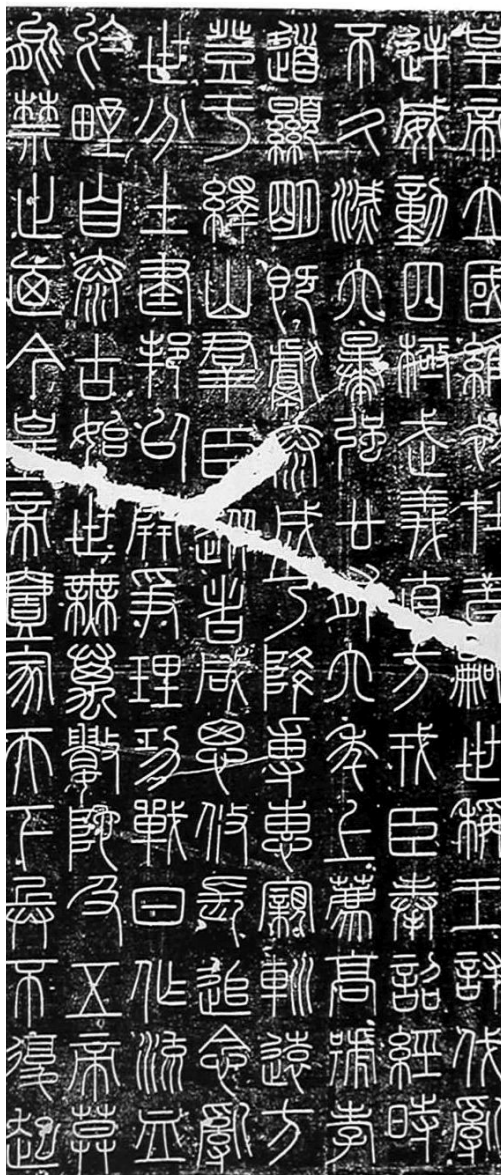 皇帝立國維初在昔嗣世稱王討伐亂
逆威動四極武義直方戎臣奉詔經時
不久滅六暴強廿有六年上薦高號孝
道顯明既獻泰成乃降專惠親巡遠方
登于繹山羣臣從者咸思攸長追念亂
世分土建邦以開爭理功戰日作流血
於野自泰古始世無萬數陀及五帝莫
能禁止廼今皇帝壹家天下兵不復起